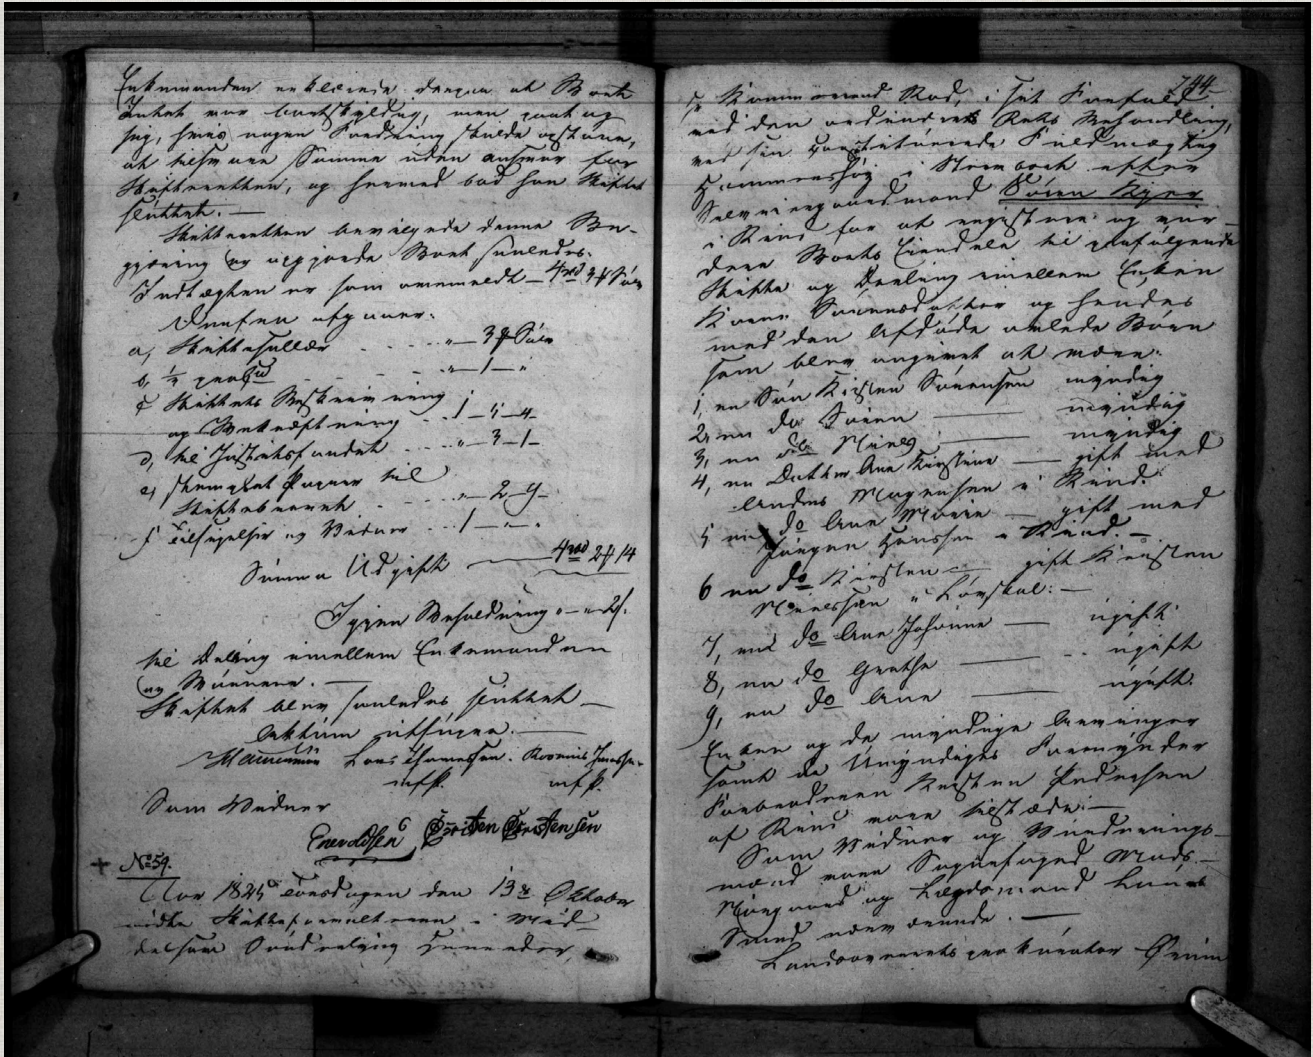 Enkemanden erklærede derpaa at Boet
Intet var bortskyldig, men paatog
sig, hvis nogen Fordring skulde opstaae,
at tilsvare Samme uden ansvar for
Skifteretten, og hermed bad han Skiftet
sluttet. —
Skifteretten bevilgede denne Be-
gjæring og opgjorde Boet saaledes.
Indtægten er som ovenmeldt — 4rd 3 Sølv
Derfra afgaaer:
a, Skiftesallær „ — 3 Sølv
b, ½ procent „ — 1 — „
c Skiftets Beskrivning
og Bekræftning 1 — 5 — 4 —
d, til Justitsfondet „ — 3 — 1 —
e, stemplet Papir til
Skiftebrevet „ — 2 — 9 —
f Tilsigelser og Vidner 1 — „ — „
Summa Udgift — 4rd 2 14
Igjen Beholdning „ — „ — 2 s.
til Deling imellem Enkemanden
og Børnene. —
Skiftet blev saaledes sluttet —
Actum utsupra. —
Lars Thomassen. Jensen
m f P. m f P.
Som Vidner
Enevoldsen Christen Christensen
+ No 59.
Aar 1825 Torsdagen den 13de Oktober
mødte Skifteforvalteren i Mid-
delsom Sønderlyng Herreder,
744
Kammerraad Rod, i sit Forfald
ved den ordinære Rets Behandling,
ved sin constituerede Fuldmægtig
Hammershøj i Sterboet efter
Selveiergaardmand Søren Kjer
i Rind for at registrere og vur-
dere Boets Eiendele til paafølgende
Skifte og Deeling imellem Enken
Karen Sørensdatter og hendes
med den Afdøde avlede Børn
som blev angivet at være:
1, en Søn Kirsten Sørensen myndig
2, en do Søren — myndig
3, en do Niels — myndig
4, en Datter Ane Kirstine — gift med
Anders Mogensen i Rind.
5 en do Ane Marie — gift med
Jørgen Hanssen i Rind. —
6 en do Kirsten — gift Kirsten
Nielssen i Løvskal: —
7, en do Ane Johanne — ugift
8, en do Grethe — ugift
9, en do Ane — ugift.
Enken og de myndige Arvinger
samt de Umyndiges Formynder
Farbroderen Kristen Pedersen
af Rind vare tilstæde. —
Som Vidner og Vurderings-
mænd vare Sognefoged Mads
Nørgaard og Lægdsmand Laurs
Smed nærværende. —
Landoverretsprokurator Ørum